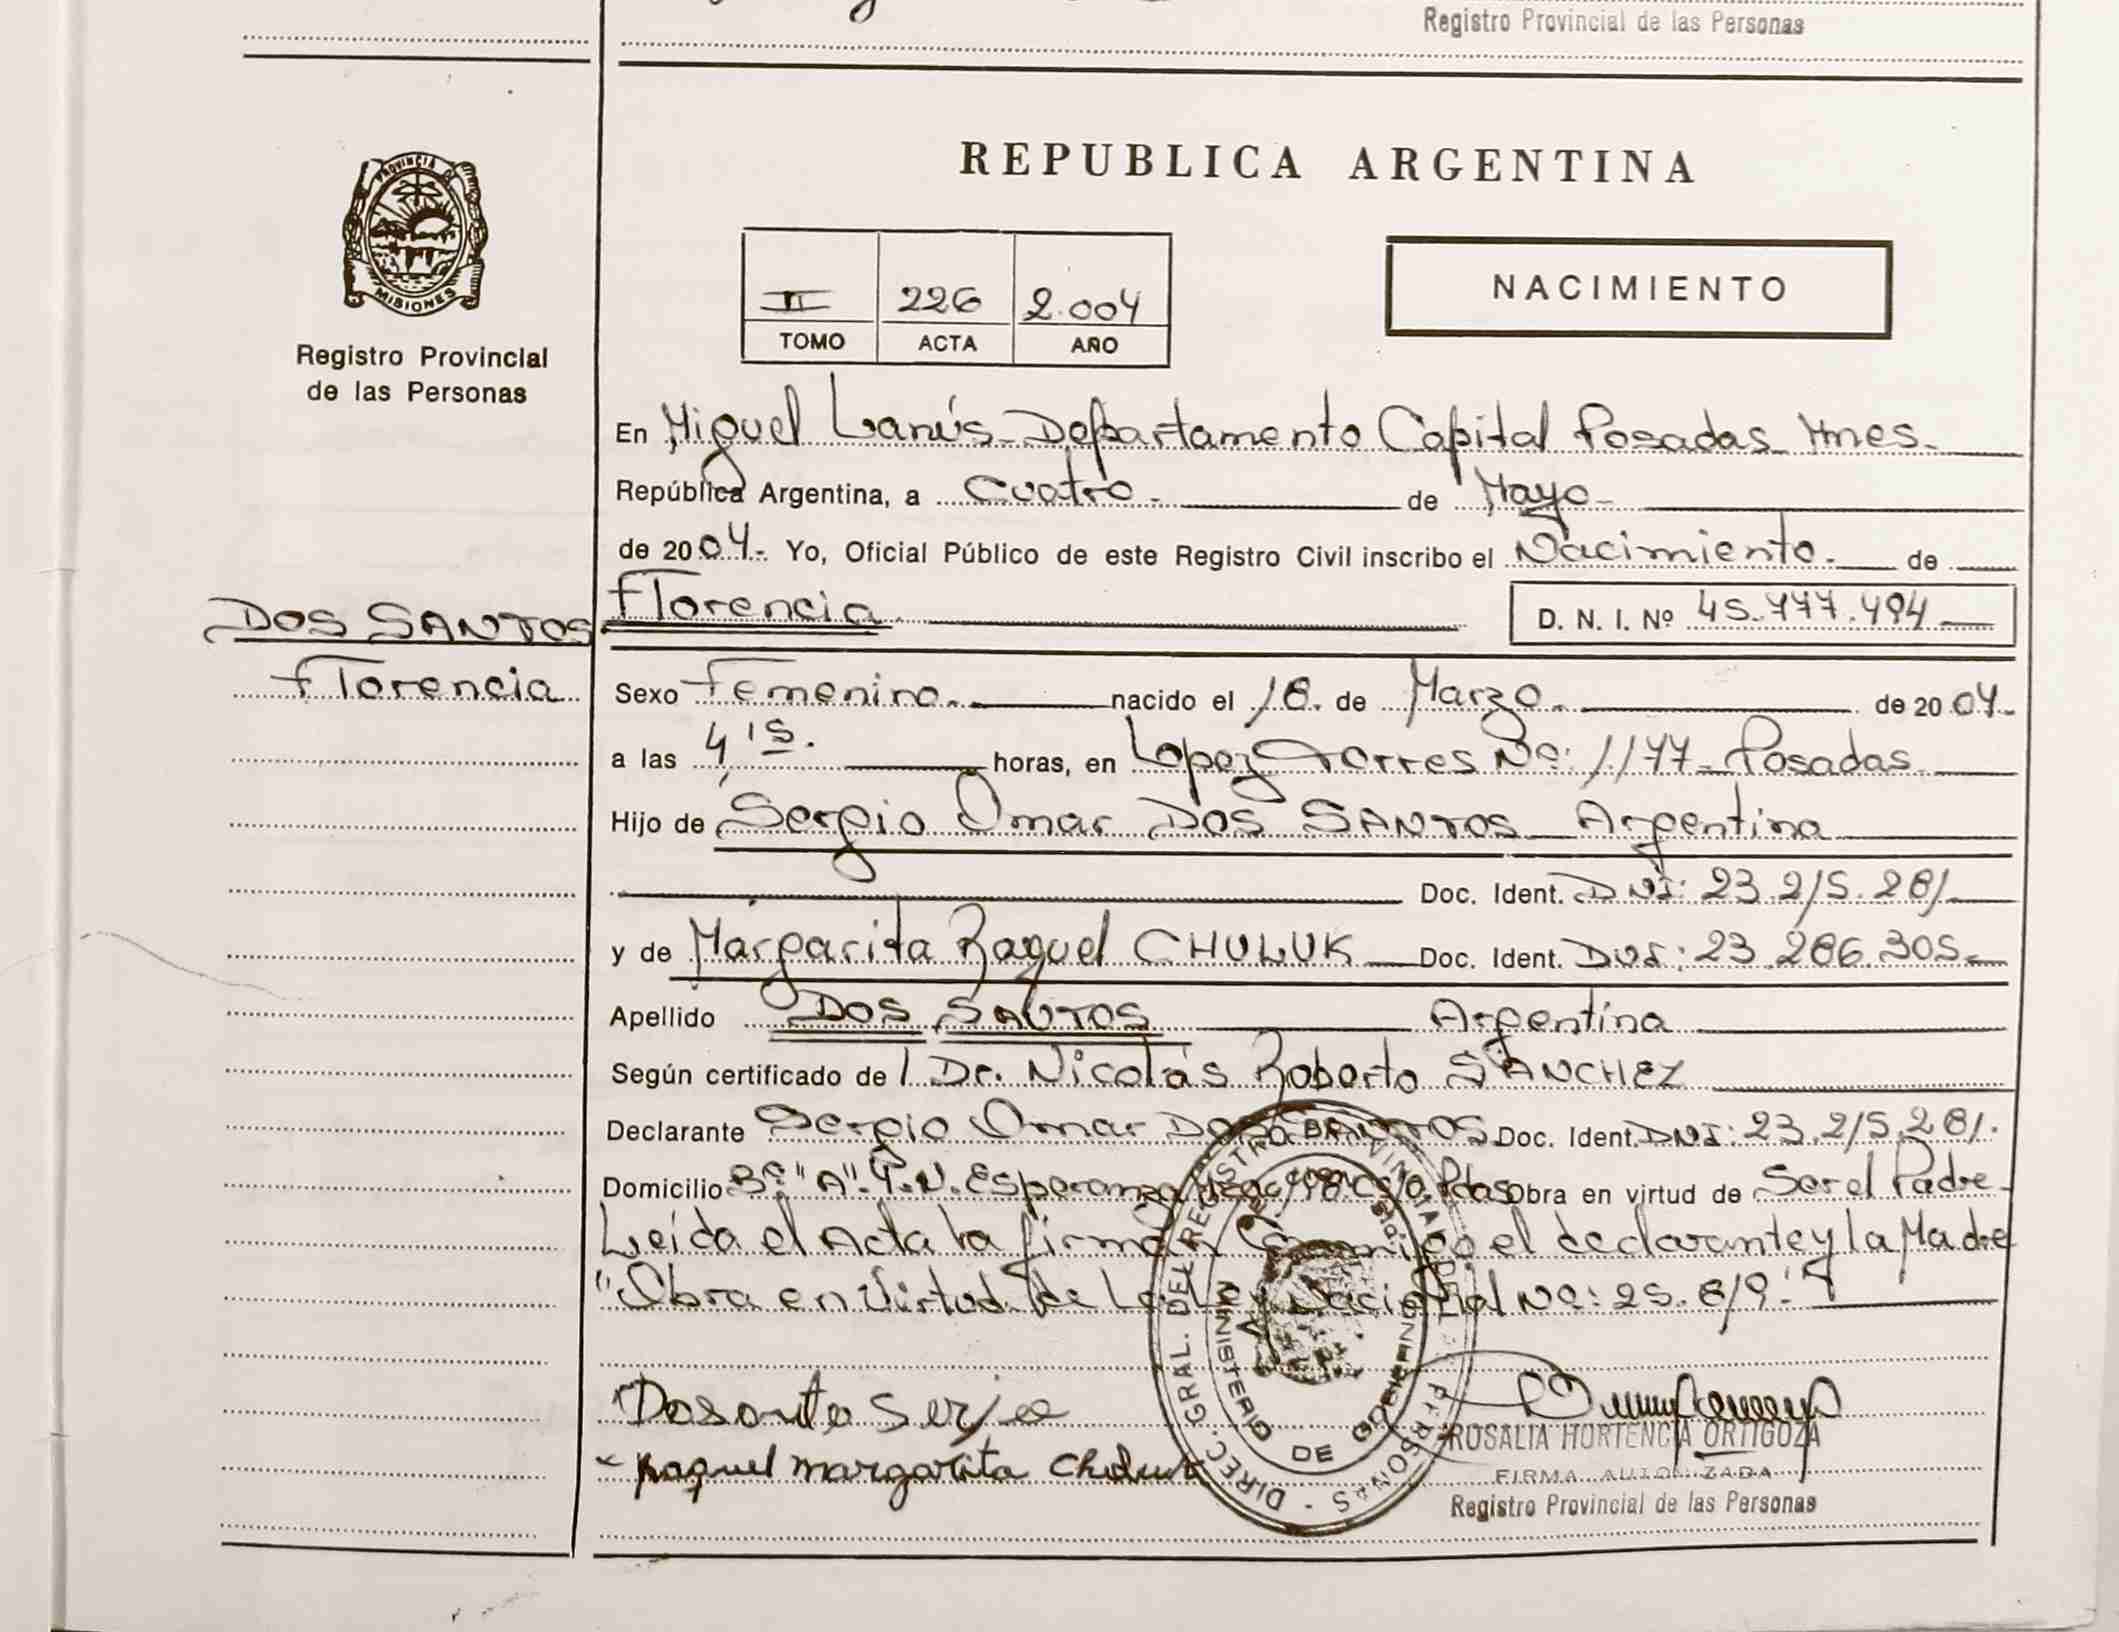 Registro Provincial de las Personas
REPUBLICA ARGENTINA
PROVINCIA DE
MISIONES
Registro Provincial
de las Personas
II 226 2.004
TOMO ACTA AÑO
NACIMIENTO
En Miguel Lanús - Departamento Capital Posadas Mnes.
República Argentina, a Cuatro - de Mayo -
de 2004.- Yo, Oficial Público de este Registro Civil inscribo el Nacimiento. de
DOS SANTOS Florencia
D. N. I. Nº 45.777.494
Florencia
Sexo Femenino. nacido el 18. de Marzo. de 2004.-
a las 4,15. horas, en Lopez Torres Nº: 1177 - Posadas.
Hijo de Sergio Omar DOS SANTOS Argentina
Doc. Ident. DNI: 23.215.281
y de Margarita Raquel CHULUK Doc. Ident. DNI: 23.286.305.-
Apellido DOS SANTOS Argentina
Según certificado de Dr. Nicolás Roberto SANCHEZ
Declarante Sergio Omar DOS SANTOS Doc. Ident. DNI: 23.215.281.
Domicilio Bº "A". Esperanza Pdas obra en virtud de Ser el Padre
Leída el Acta la firman Conmigo el declarante y la Madre
"Obra en Virtud de la Ley Nacional Nº: 25.819."
DIREC. GRAL. DEL REGISTRO PROVINCIAL DE LAS PERSONAS
MINISTERIO DE GOBIERNO
Raquel margarita Chuluk
ROSALIA HORTENCIA ORTIGOZA
FIRMA AUTORIZADA
Registro Provincial de las Personas